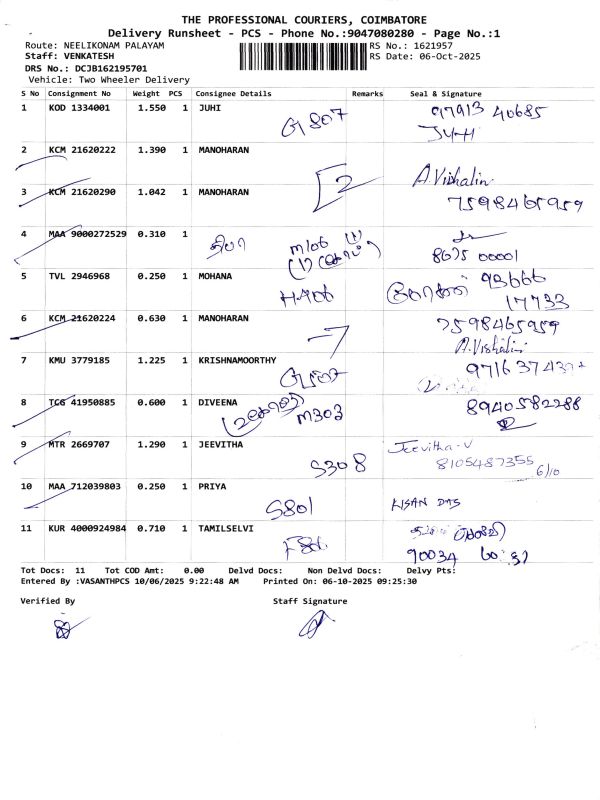 THE PROFESSIONAL COURIERS, COIMBATORE
Delivery Runsheet - PCS - Phone No.:9047080280 - Page No.:1
Route: NEELIKONAM PALAYAM RS No.: 1621957
Staff: VENKATESH RS Date: 06-Oct-2025
DRS No.: DCJB162195701
Vehicle: Two Wheeler Delivery
S No Consignment No Weight PCS Consignee Details Remarks Seal & Signature
1 KOD 1334001 1.550 1 JUHI 97913 40685
G1807 JUHI
2 KCM 21620222 1.390 1 MANOHARAN
2 A.Vishalini
3 KCM 21620290 1.042 1 MANOHARAN 7598465959
4 MAA 9000272529 0.310 1
M106 8675 00001
5 TVL 2946968 0.250 1 MOHANA 93666
H406 17733
6 KCM 21620224 0.630 1 MANOHARAN 7598465959
A.Vishalini
7 KMU 3779185 1.225 1 KRISHNAMOORTHY
8 TCG 41950885 0.600 1 DIVEENA 8940582288
M303
9 MTR 2669707 1.290 1 JEEVITHA Jeevitha-V
S308 8105487355 6/10
10 MAA 712039803 0.250 1 PRIYA
S801 KISAN DAS
11 KUR 4000924984 0.710 1 TAMILSELVI
90034
Tot Docs: 11 Tot COD Amt: 0.00 Delvd Docs: Non Delvd Docs: Delvy Pts:
Entered By :VASANTHPCS 10/06/2025 9:22:48 AM Printed On: 06-10-2025 09:25:30
Verified By Staff Signature